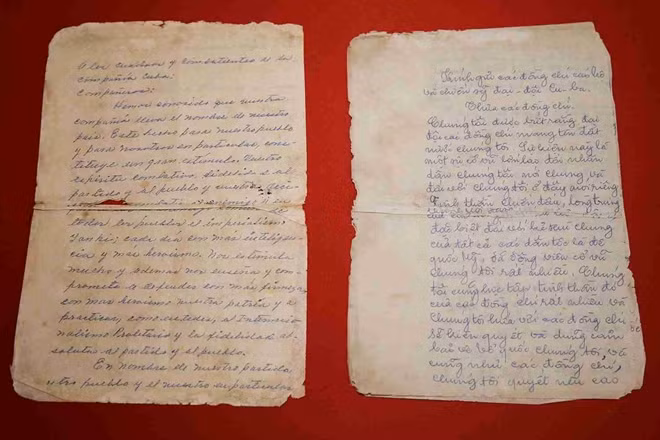 A los cuadros y combatientes de la
compañía Cuba:
Compañeros:
Hemos conocido que vuestra
compañía lleva el nombre de nuestro
país. Este hecho para nuestro pueblo
y para nosotros en particular, cons-
tituye un gran estímulo. Vuestro
espíritu combativo, fidelidad al
partido y al pueblo y
combatir al enemigo
todos los pueblos el imperialismo
Yanki, cada día son más inteligen-
cia y más heroísmo. Nos estimula
mucho y además nos enseña y com-
promete a defender con más firmeza
con más heroísmo nuestra patria y a
practicar, como ustedes, el Internacio-
nalismo Proletario y la fidelidad ab-
soluta al partido y al pueblo.
En nombre de nuestro partido
y el nuestro en particular
Kính gửi các đồng chí cán bộ
và chiến sỹ đại-đội Cu Ba.
Thưa các đồng chí.
Chúng tôi được biết rằng đại
đội các đồng chí mang tên đất
nước chúng tôi. Sự kiện này là
một sự cổ vũ lớn lao đối nhân
dân chúng tôi nói chung và
đối với chúng tôi ở đây nói riêng
Tinh thần chiến đấu, lòng trung
của
đối với của
của tất cả các dân tộc là đế
quốc Mỹ, đã động viên cổ vũ
chúng tôi rất nhiều. Chúng
tôi cũng học tập tinh thần đó
của các đồng chí rất nhiều và
chúng tôi hứa với các đồng chí
sẽ kiên quyết và dũng cảm
bảo vệ tổ quốc chúng tôi, và
cũng như các đồng chí,
chúng tôi quyết nêu cao